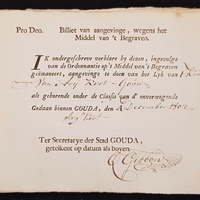 Pro Deo. Billiet van aangevinge, wegens het
Middel van 't Begraven.
IK ondergeschreve verklare by dezen, ingevolge
van de Ordonnantie op 't Middel van 't Begraven
geëmaneert, aangevinge te doen van het Lyk van 't Kind
van
als gehoorende onder de Classis van d' onvermogende
Gedaan binnen GOUDA, den December 1802
Ter Secretarye der Stad GOUDA,
geteikent op datum als boven.